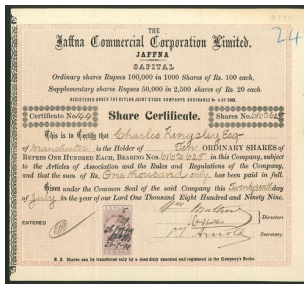 THE
Jaffna Commercial Corporation Limited.
JAFFNA
CAPITAL
Ordinary shares Rupees 100,000 in 1000 Shares of Rs. 100 each,
Supplementary shares Rupees 50,000 in 2,500 shares of Rs. 20 each.
REGISTERED UNDER THE CEYLON JOINT STOCK COMPANYS ORDINANCE No 4 OF 1861.
Certificate No 44 Share Certificate. Shares No 616 to 625
This is to Certify that Charles Kingsley Esq
of Manchester is the Holder of Ten ORDINARY SHARES OF
RUPEES ONE HUNDRED EACH, BEARING NOS 616 to 625 in this Company, subject
to the Articles of Association and the Rules and Regulations of the Company,
and that the sum of Rs. One thousand only has been paid in full.
Given under the Common Seal of the said Company this Twentysixth day
of July in the year of our Lord One Thousand Eight Hundred and Ninety Nine.
ENTERED
Directors
Secretary.
N. B. Shares can be transferred only by a deed duly executed and registered in the Company's Books.
24